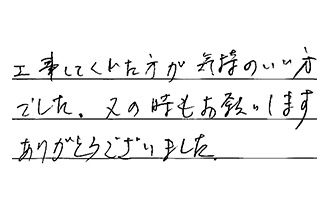 工事してくれた方が気持のいい方
でした。又の時もお願いします
ありがとうございました。